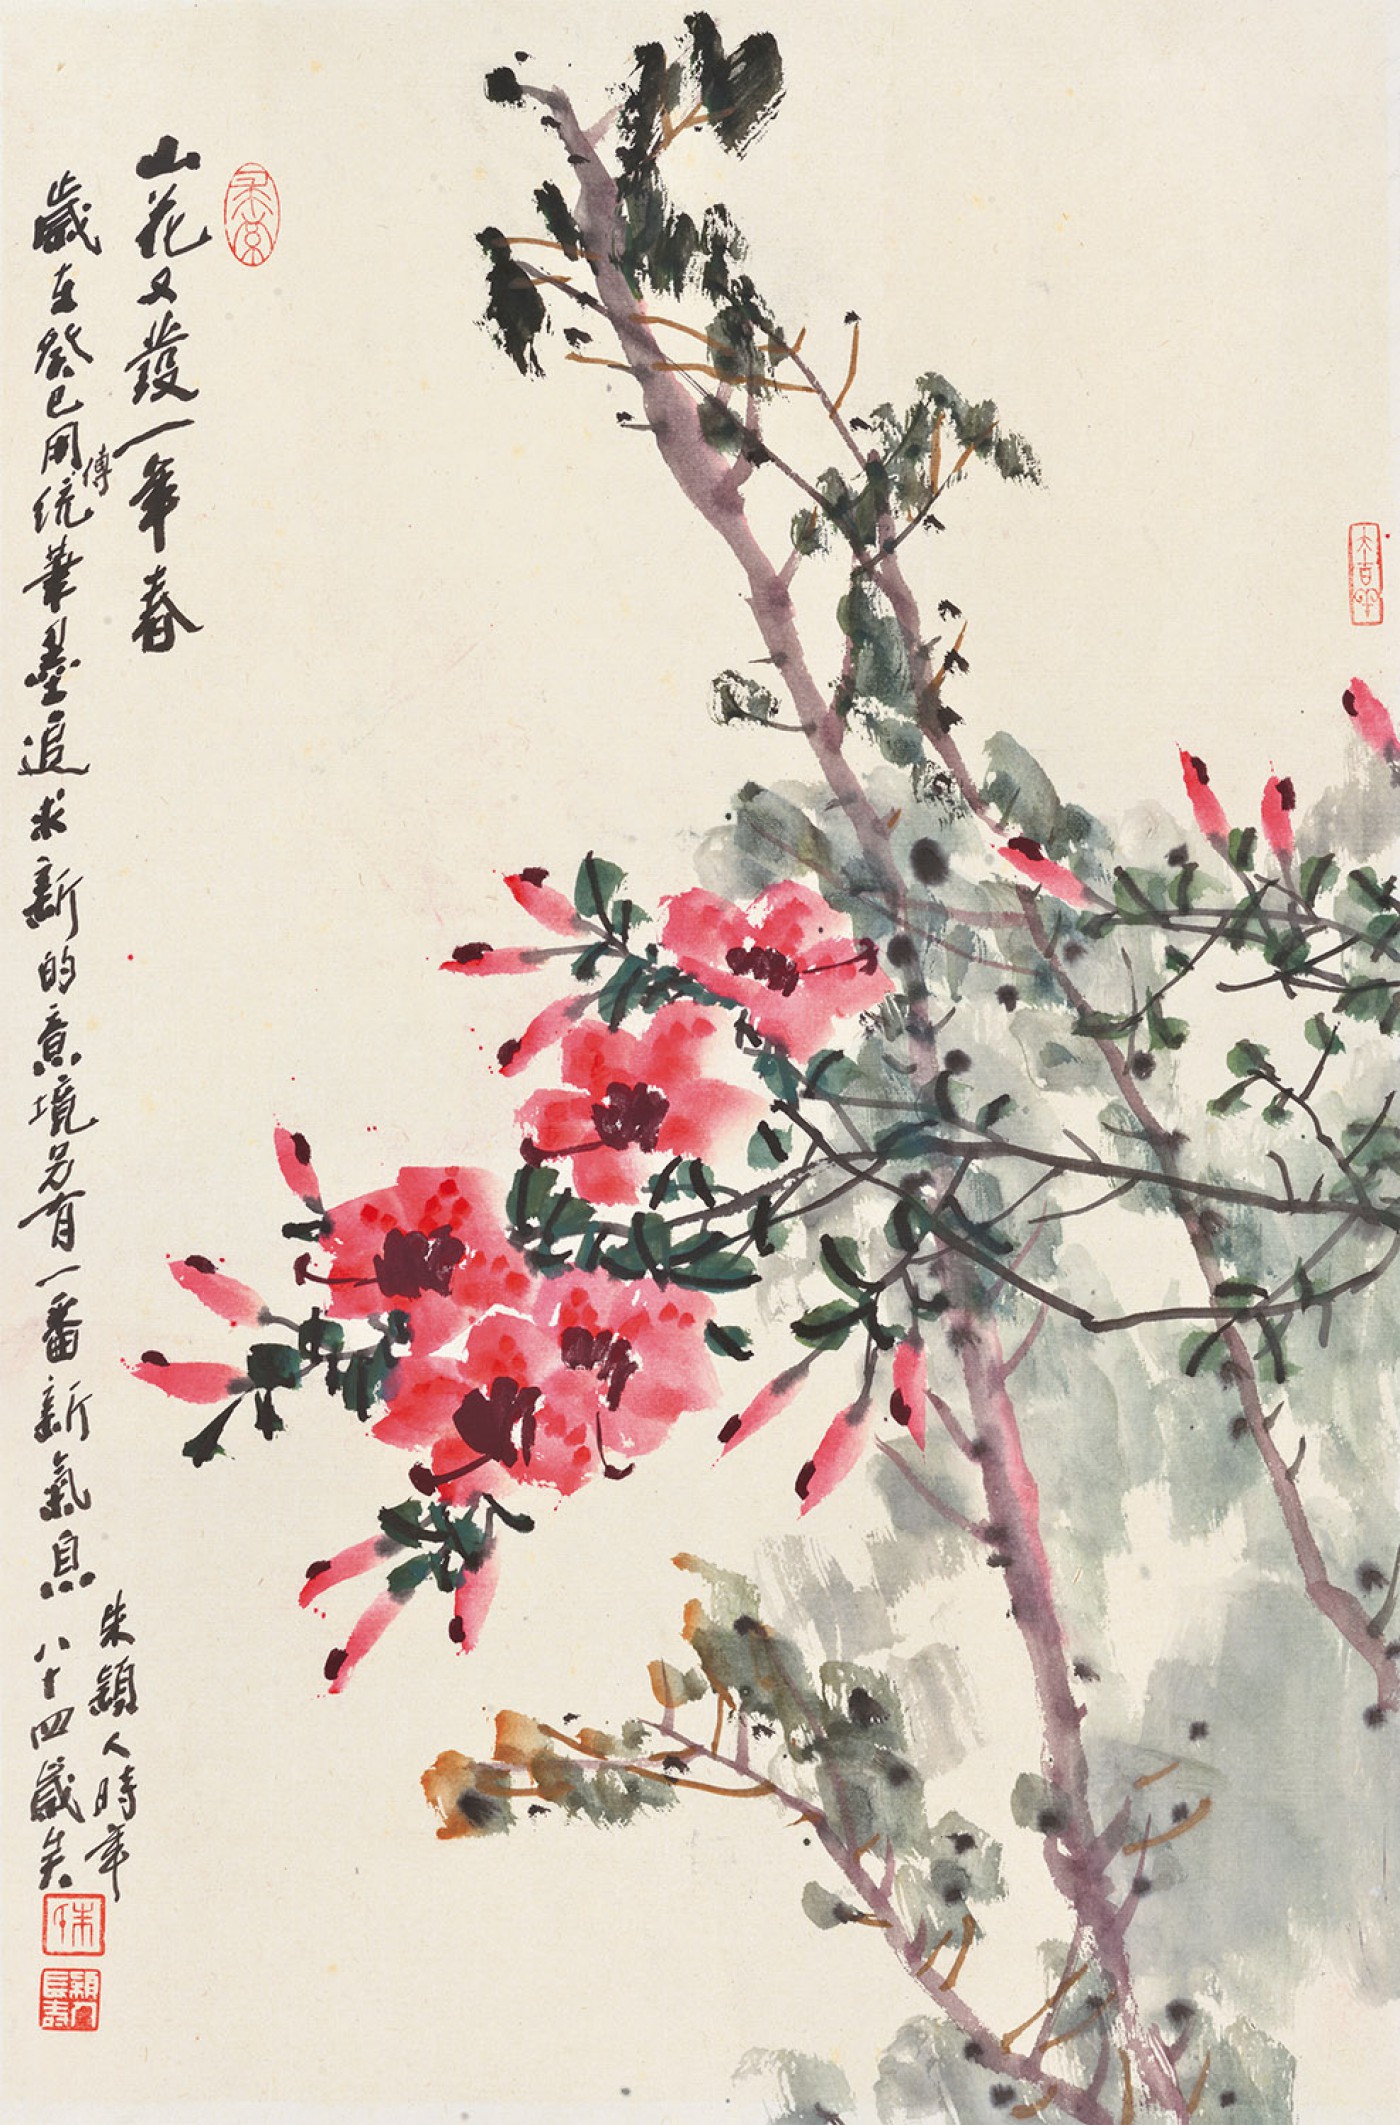 山花又發一年春
歲在癸巳用傳统筆墨追求新的意境另有一番新氣息
朱穎人時年
八十四歲矣
朱